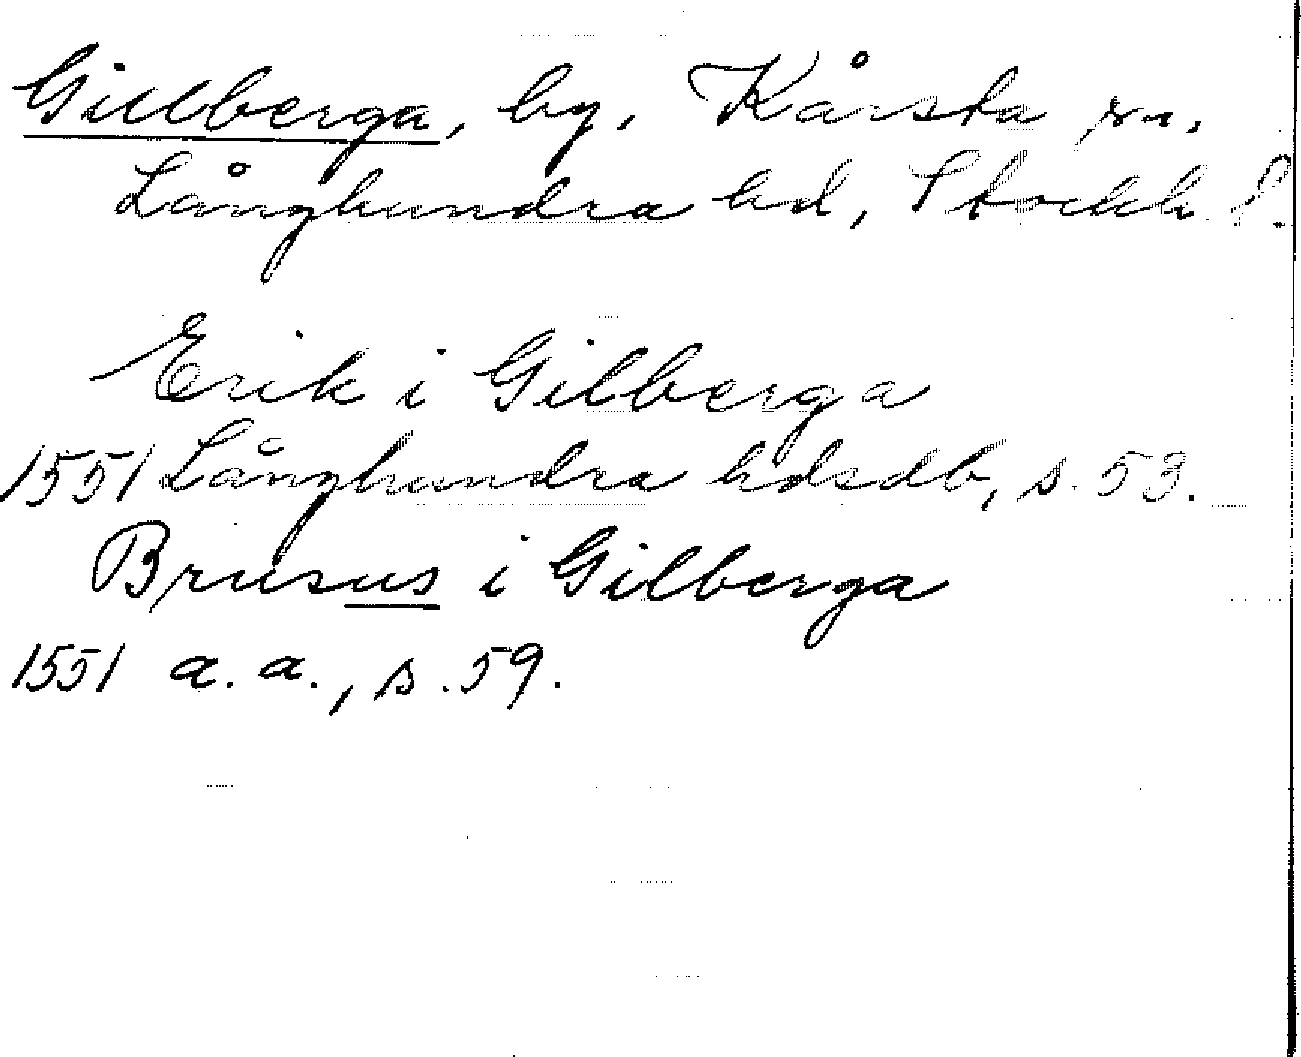 Gillberga, by, Kårsta sn,
Långhundra hd, Stockh. l.
Erik i Gilberga
1551 Långhundra hdsdb, s. 53.
Brusus i Gilberga
1551 a. a., s. 59.